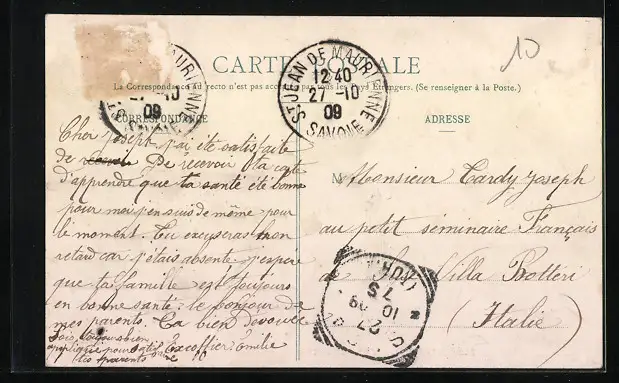 CARTE POSTALE
La Correspondance au recto n'est pas acceptée par tous les Pays Étrangers. (Se renseigner à la Poste.)
CORRESPONDANCE
ADRESSE
10
ST JEAN DE MAURIENNE
12 40
27 - 10
09
SAVOIE
MAURIENNE
27 - 10
09
Cher Joseph j'ai été satisfaite
de De recevoir ta carte
d'apprendre que ta santé été bonne
pour moi j'en suis de même pour
le moment. Tu excuseras mon
retard car j'étais absente. j'espère
que ta famille est toujours
en bonne santé. le bonjour de
mes parents. Ta bien Dévouée
Sois toujours bien
pour Excoffier Emilie
tes parents
M Monsieur Tardy Joseph
au petit séminaire Français
de la Villa Botteri
(Italie)
7 S
10 09
27